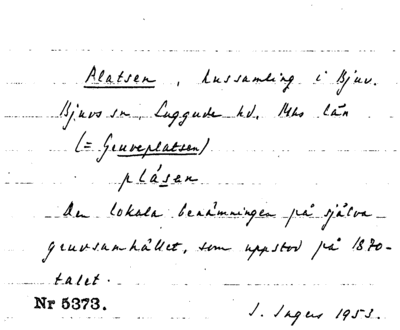 Platsen, hussamling i Bjuv.
Bjuvs sn, Luggude hd, Mhs län
(= Gruveplatsen)
plásen
Den lokala benämningen på själva
gruvsamhället, som uppstod på 1870-
talet.
Nr 5373.
S. Ingers 1953.